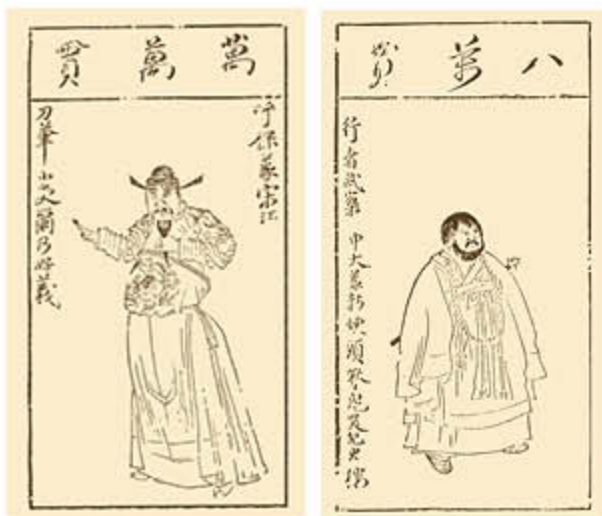 萬萬貫
呼保義宋江
刀筆小吏爾乃好義
八萬貫
行者武松 申大義斬嫂頭啾